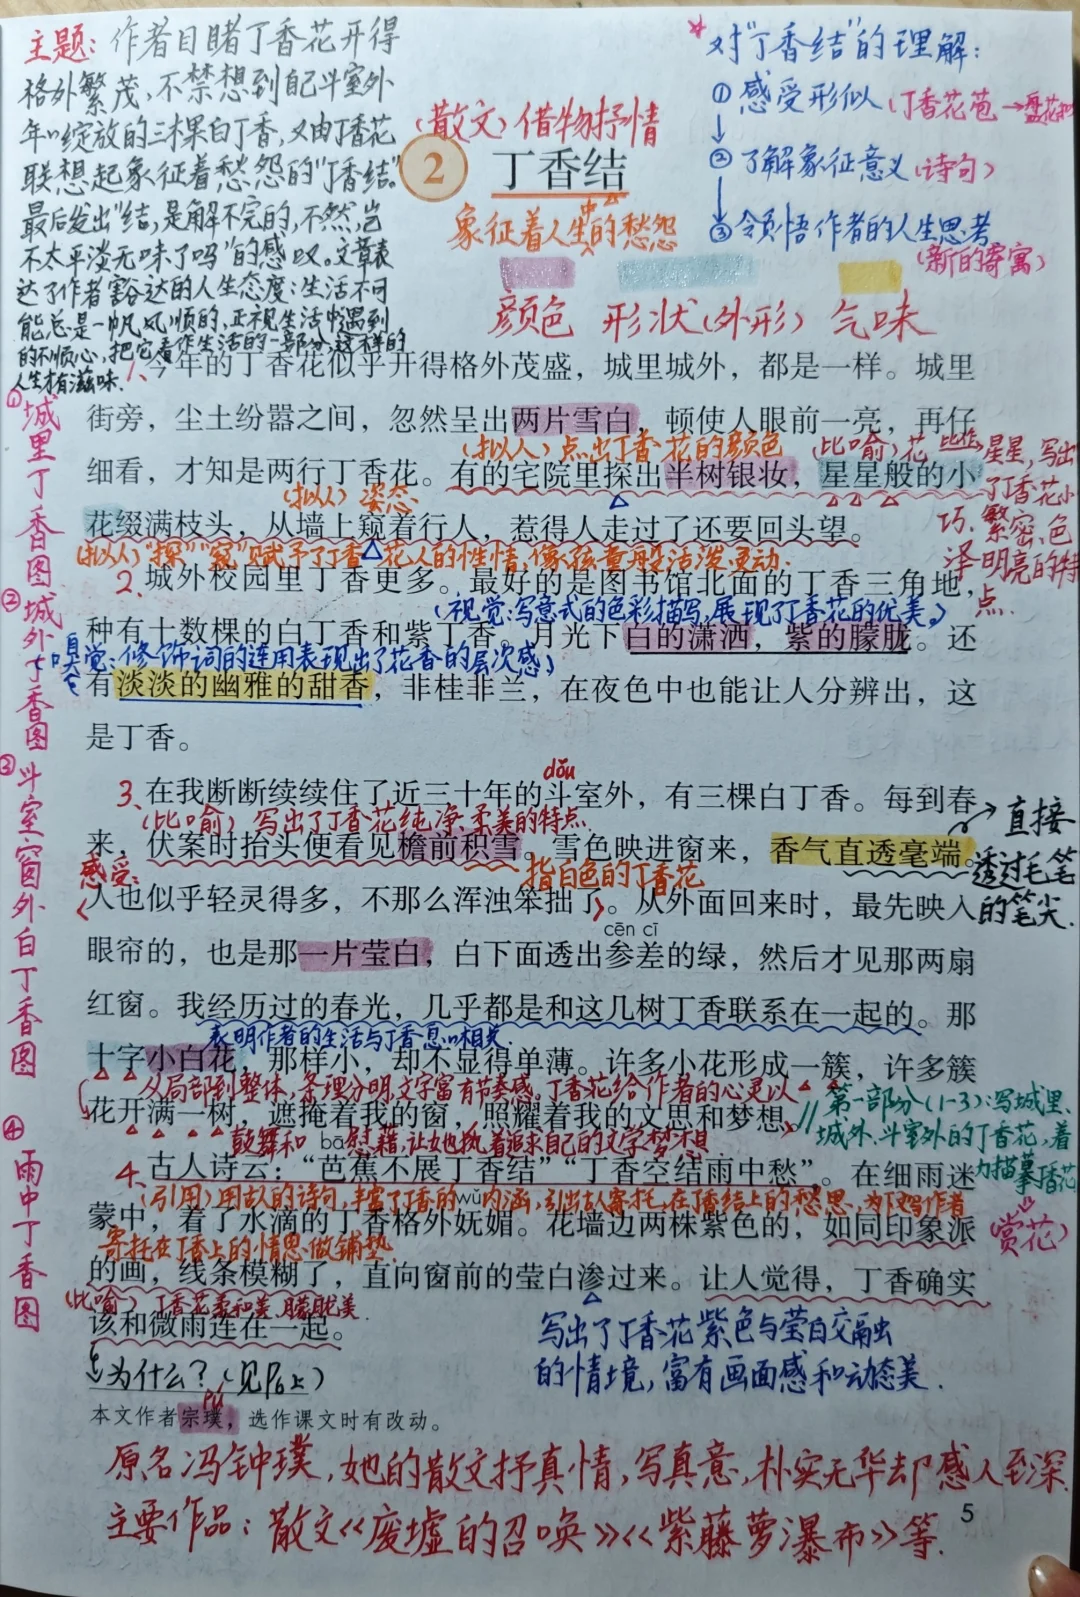 主题：作者目睹丁香花开得
格外繁茂，不禁想到自己斗室外
年年绽放的三棵白丁香，又由丁香花
联想起象征着愁怨的“丁香结”。
最后发出“结，是解不完的，不然，岂
不太平淡无味了吗”的感叹。文章表
达了作者豁达的人生态度：生活不可
能总是一帆风顺的，正视生活中遇到
的不顺心，把它看作生活的一部分，这样的
人生才有滋味。
*对“丁香结”的理解：
①感受形似（丁香花苞→盘花扣
↓
②了解象征意义（诗句）
↓
③领悟作者的人生思考
（新的寄寓）
（散文）借物抒情
2 丁香结
象征着人生中的愁怨
颜色 形状（外形） 气味
1、今年的丁香花似乎开得格外茂盛，城里城外，都是一样。城里
街旁，尘土纷嚣之间，忽然呈出两片雪白，顿使人眼前一亮，再仔
（拟人）点出丁香花的颜色
（比喻）花比作星星，写出
了丁香花小
巧、繁密、色
泽明亮的特
点.
细看，才知是两行丁香花。有的宅院里探出半树银妆，星星般的小
（拟人）姿态
花缀满枝头，从墙上窥着行人，惹得人走过了还要回头望。
（拟人）“探”“窥”赋予了丁香花人的性情，像孩童般活泼灵动.
2.城外校园里丁香更多。最好的是图书馆北面的丁香三角地，
（视觉：写意式的色彩描写，展现了丁香花的优美。）
种有十数棵的白丁香和紫丁香。月光下白的潇洒，紫的朦胧。还
（嗅觉：修饰词的连用表现出了花香的层次感）
有淡淡的幽雅的甜香，非桂非兰，在夜色中也能让人分辨出，这
是丁香。
dǒu
3、在我断断续续住了近三十年的斗室外，有三棵白丁香。每到春
（比喻）写出了丁香花纯净、柔美的特点.
来，伏案时抬头便看见檐前积雪。雪色映进窗来，香气直透毫端。
→直接
透过毛笔
的笔尖.
感受：
指白色的丁香花
人也似乎轻灵得多，不那么浑浊笨拙了。从外面回来时，最先映入
cēn cī
眼帘的，也是那一片莹白，白下面透出参差的绿，然后才见那两扇
红窗。我经历过的春光，几乎都是和这几树丁香联系在一起的。那
表明作者的生活与丁香息息相关.
十字小白花，那样小，却不显得单薄。许多小花形成一簇，许多簇
从局部到整体，条理分明，文字富有节奏感。丁香花给作者的心灵以
花开满一树，遮掩着我的窗，照耀着我的文思和梦想。
鼓舞和慰藉，让她执着追求自己的文学梦想
//第一部分（1-3）：写城里、
城外、斗室外的丁香花，着
力描摹丁香花
（赏花）
bā
4、古人诗云：“芭蕉不展丁香结”“丁香空结雨中愁”。在细雨迷
（引用）用古人的诗句，丰富了丁香的内涵，引出古人寄托在丁香结上的愁思，为下文写作者
wǔ
蒙中，着了水滴的丁香格外妩媚。花墙边两株紫色的，如同印象派
寄托在丁香上的情思做铺垫.
的画，线条模糊了，直向窗前的莹白渗过来。让人觉得，丁香确实
（比喻）丁香花柔和美、朦胧美.
该和微雨连在一起。
为什么？（见P6上）
写出了丁香花紫色与莹白交融
的情境，富有画面感和动态美.
pú
本文作者宗璞，选作课文时有改动。
原名冯钟璞，她的散文抒真情，写真意，朴实无华却感人至深.
主要作品：散文《废墟的召唤》《紫藤萝瀑布》等.
5
①城里丁香图
②城外丁香图
③斗室窗外白丁香图
④雨中丁香图